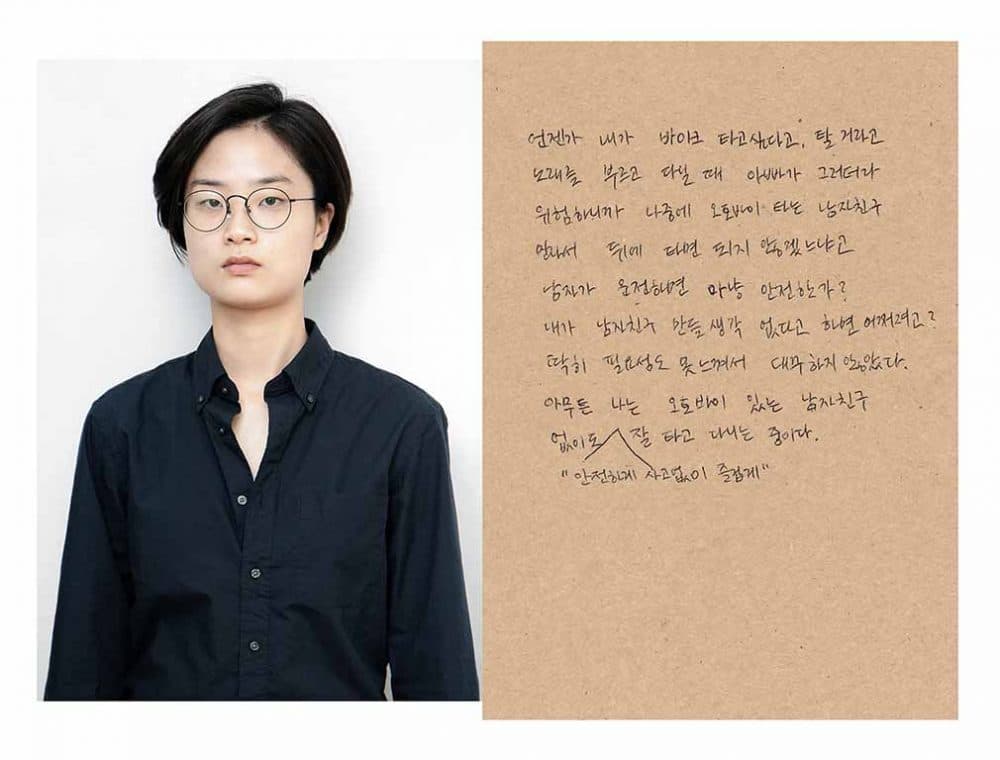 언젠가 내가 바이크 타고싶다고, 탈 거라고
노래를 부르고 다닐 때 아빠가 그러더라
위험하니까 나중에 오토바이 타는 남자친구
만나서 뒤에 타면 되지 않겠느냐고
남자가 운전하면 마냥 안전한가?
내가 남자친구 만들 생각 없다고 하면 어쩌려고?
딱히 필요성도 못 느껴서 대꾸하지 않았다.
아무튼 나는 오토바이 있는 남자친구
없이도 잘 타고 다니는 중이다.
"안전하게 사고없이 즐겁게"